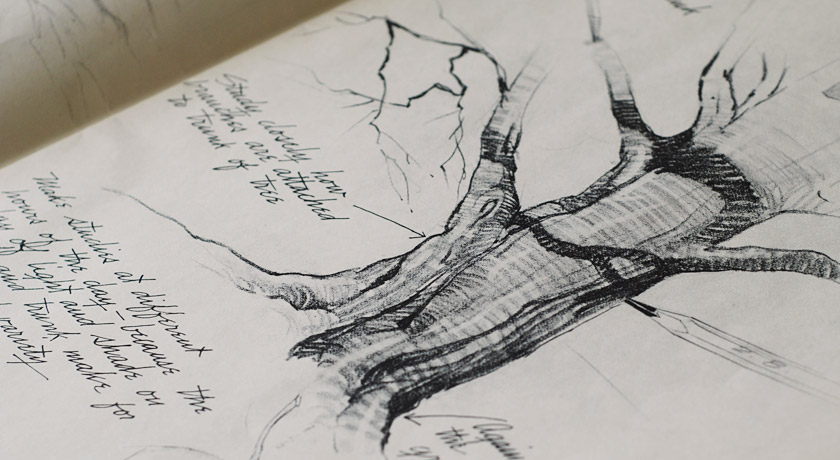 Study closely how
branches are attached
to trunk of tree
Make studies at different
hours of the day – because the
of light and shade on
and trunk make for
variety
Again
the
2 B